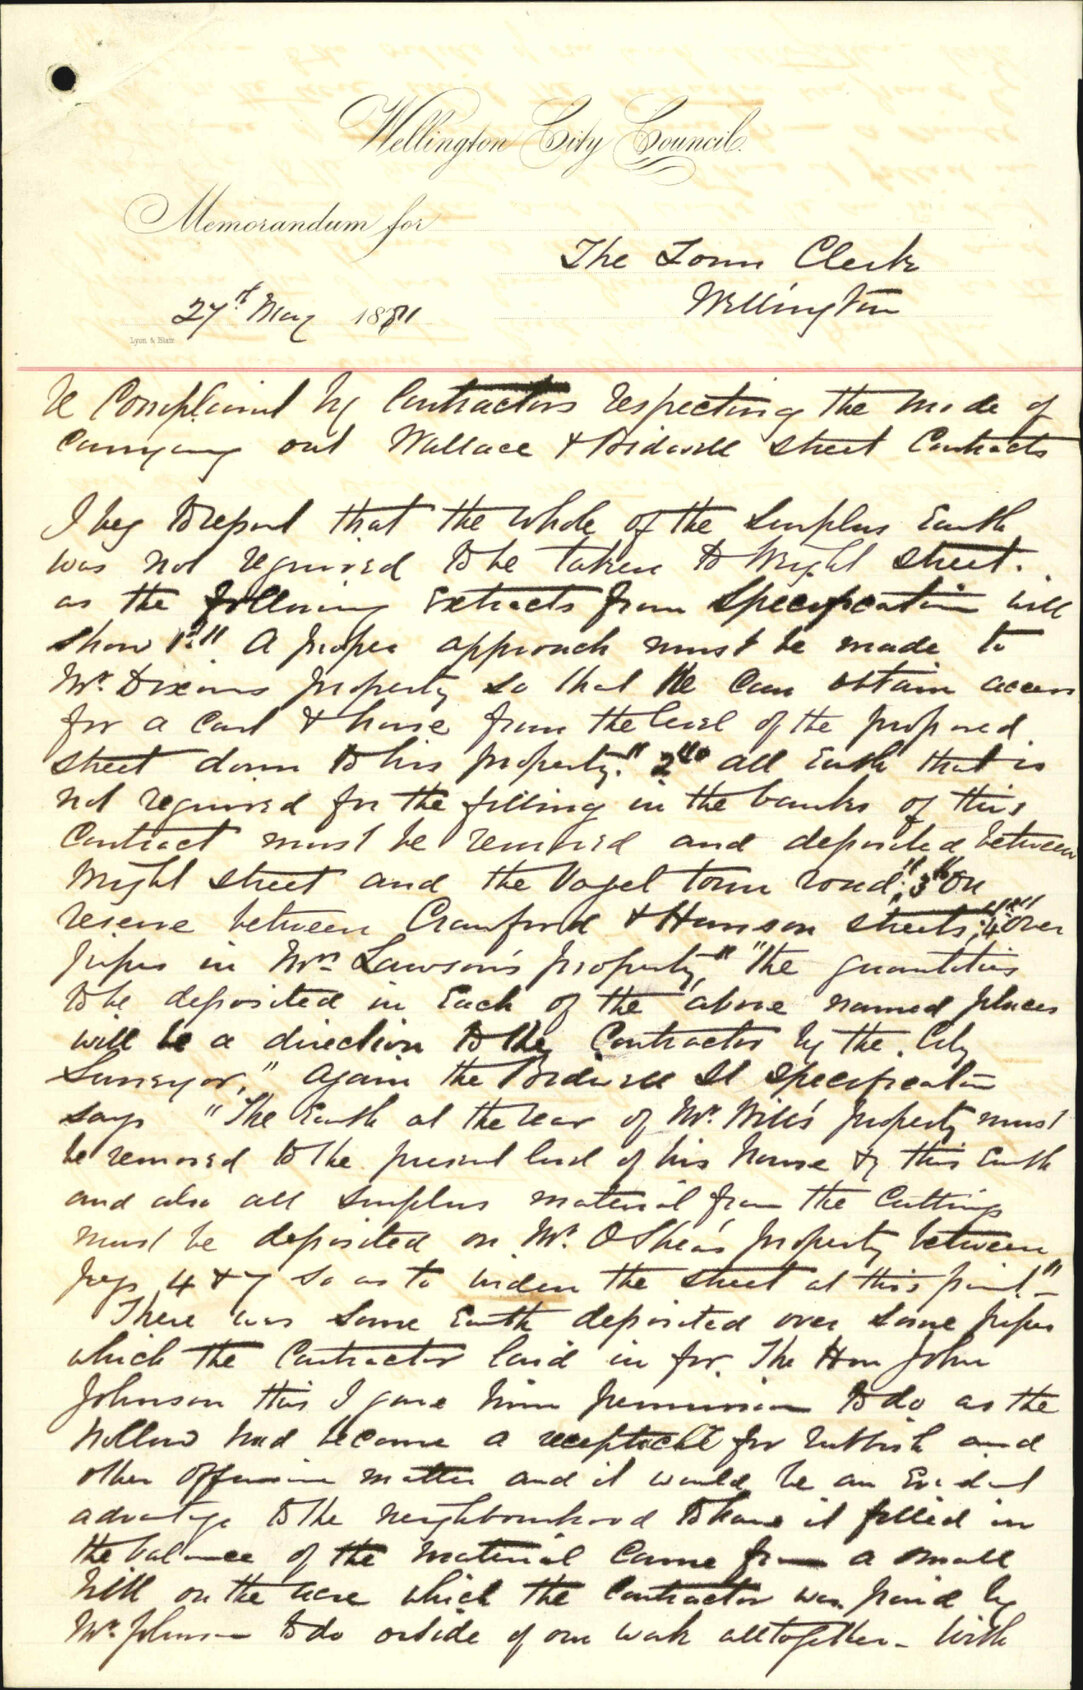 Wellington City Council.
Memorandum for
The Town Clerk
Wellington
27th May 1881
Lyon & Blair
Re Complaint by Contractors respecting the mode of
Carrying out Wallace & Bidwell Street Contracts
I beg to report that the whole of the Surplus Earth
was not required to be taken to Wright Street.
as the following Extracts from Specification will
show 1st" A proper approach must be made to
Mr. Dixons property so that He can obtain access
for a cart & horse from the level of the proposed
street down to his property." 2nd" All Earth that is
not required for the filling in the banks of this
Contract must be removed and deposited between
Wright Street and the Vogel town road," 3rd" On
reserve between Crawford & Hanson Streets," 4th" Over
pipes in Mrs. Lawson's property," "The quantities
to be deposited in Each of the above named places
will be a direction to the Contractor by the City
Surveyor," Again the Bidwell St Specification
says "The Earth at the rear of Mr. Wills' property must
be removed to the present level of his House & this Earth
and also all Surplus material from the Cuttings
must be deposited on Mr. O'Shea's property between
pegs 4 & 7 so as to widen the street at this point"-
There was some Earth deposited over some pipes
which the Contractor laid in for The Hon John
Johnson this I gave him permission to do as the
hollow had become a receptacle for rubbish and
other offensive matter and it would be an Evident
advantage to the neighbourhood to have it filled in
the balance of the material came from a small
hill on the acre which the Contractor was paid by
Mr. Johnson to do outside of our work alltogether - With